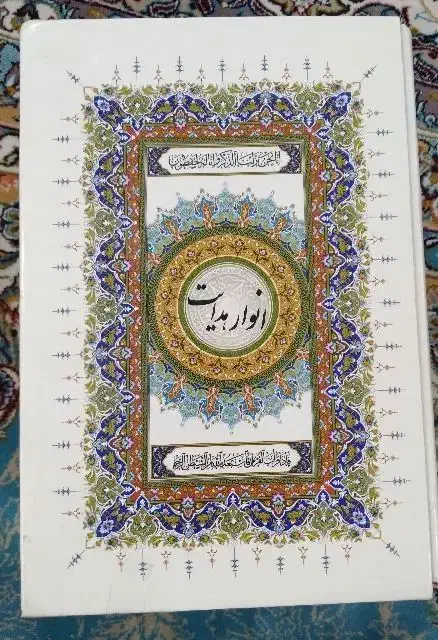 إنا نحن نزلنا الذكر وإنا له لحافظون
انوار هدایت
فإذا قرأت القرآن فاستعذ بالله من الشيطان الرجيم